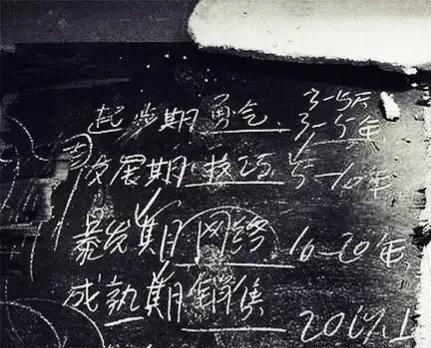 3-5
起步期 勇气 3-5年
发展期 技巧 5-10年
暴发期 网络 10-20年
成熟期 20以上